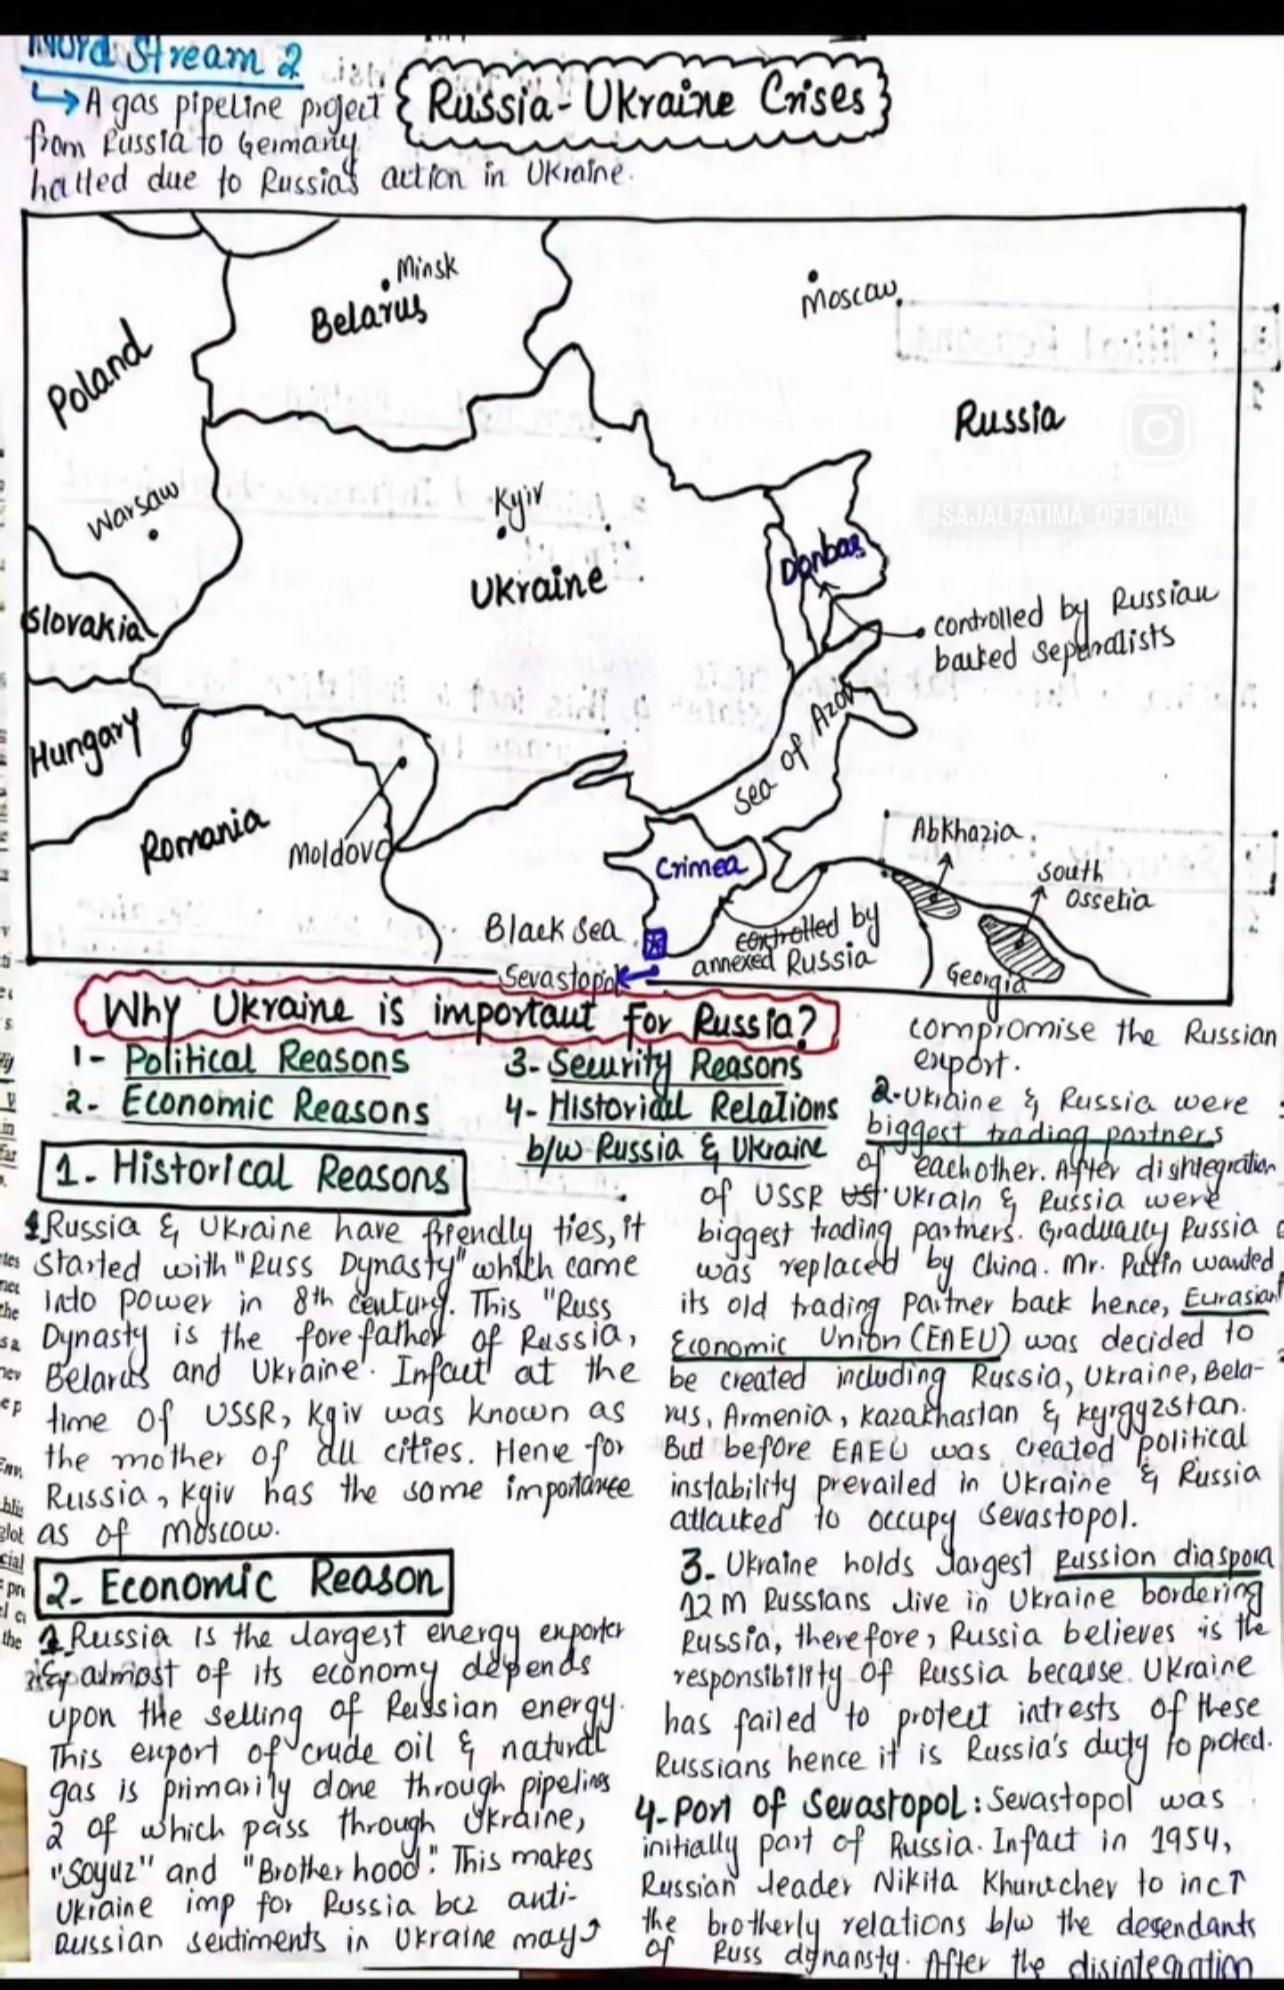 Nord Stream 2
↳ A gas pipeline project
from Russia to Germany
halted due to Russia's action in Ukraine.
Russia-Ukraine Crises
Minsk
Belarus
Moscow
Poland
Russia
Warsaw
Kyiv
@SAJALFATIMA_OFFICIAL
Donbas
Ukraine
Slovakia
controlled by Russian
backed Seperatists
Hungary
Sea of Azov
Romania
Moldova
Abkhazia
Crimea
South
Ossetia
Black Sea
controlled by
annexed Russia
Sevastopol
Georgia
Why Ukraine is important for Russia?
1- Political Reasons
2- Economic Reasons
3- Security Reasons
4- Historical Relations
b/w Russia & Ukraine
1- Historical Reasons
1. Russia & Ukraine have friendly ties, it
started with "Russ Dynasty" which came
into power in 8th century. This "Russ
Dynasty is the forefather of Russia,
Belarus and Ukraine. Infact at the
time of USSR, Kyiv was known as
the mother of all cities. Hene for
Russia, Kyiv has the same importance
as of Moscow.
2- Economic Reason
1. Russia is the largest energy exporter
& almost of its economy depends
upon the selling of Russian energy.
This export of crude oil & natural
gas is primarily done through pipelines
2 of which pass through Ukraine,
"Soyuz" and "Brotherhood". This makes
Ukraine imp for Russia bcz anti-
Russian sentiments in Ukraine may
compromise the Russian
export.
2- Ukraine & Russia were
biggest trading partners
of eachother. After disintegration
of USSR Ukrain & Russia were
biggest trading partners. Gradually Russia
was replaced by China. Mr. Putin wanted
its old trading partner back hence, Eurasian
Economic Union (EAEU) was decided to
be created including Russia, Ukraine, Bela-
rus, Armenia, Kazakhastan & Kyrgyzstan.
But before EAEU was created political
instability prevailed in Ukraine & Russia
attacked to occupy Sevastopol.
3. Ukraine holds largest Russian diaspora
12 M Russians live in Ukraine bordering
Russia, therefore, Russia believes is the
responsibility of Russia because Ukraine
has failed to protect intrests of these
Russians hence it is Russia's duty to protect.
4- Port of Sevastopol: Sevastopol was
initially part of Russia. Infact in 1954,
Russian leader Nikita Khurutchev to inc↑
the brotherly relations b/w the desendants
of Russ dynansty. After the disintegration